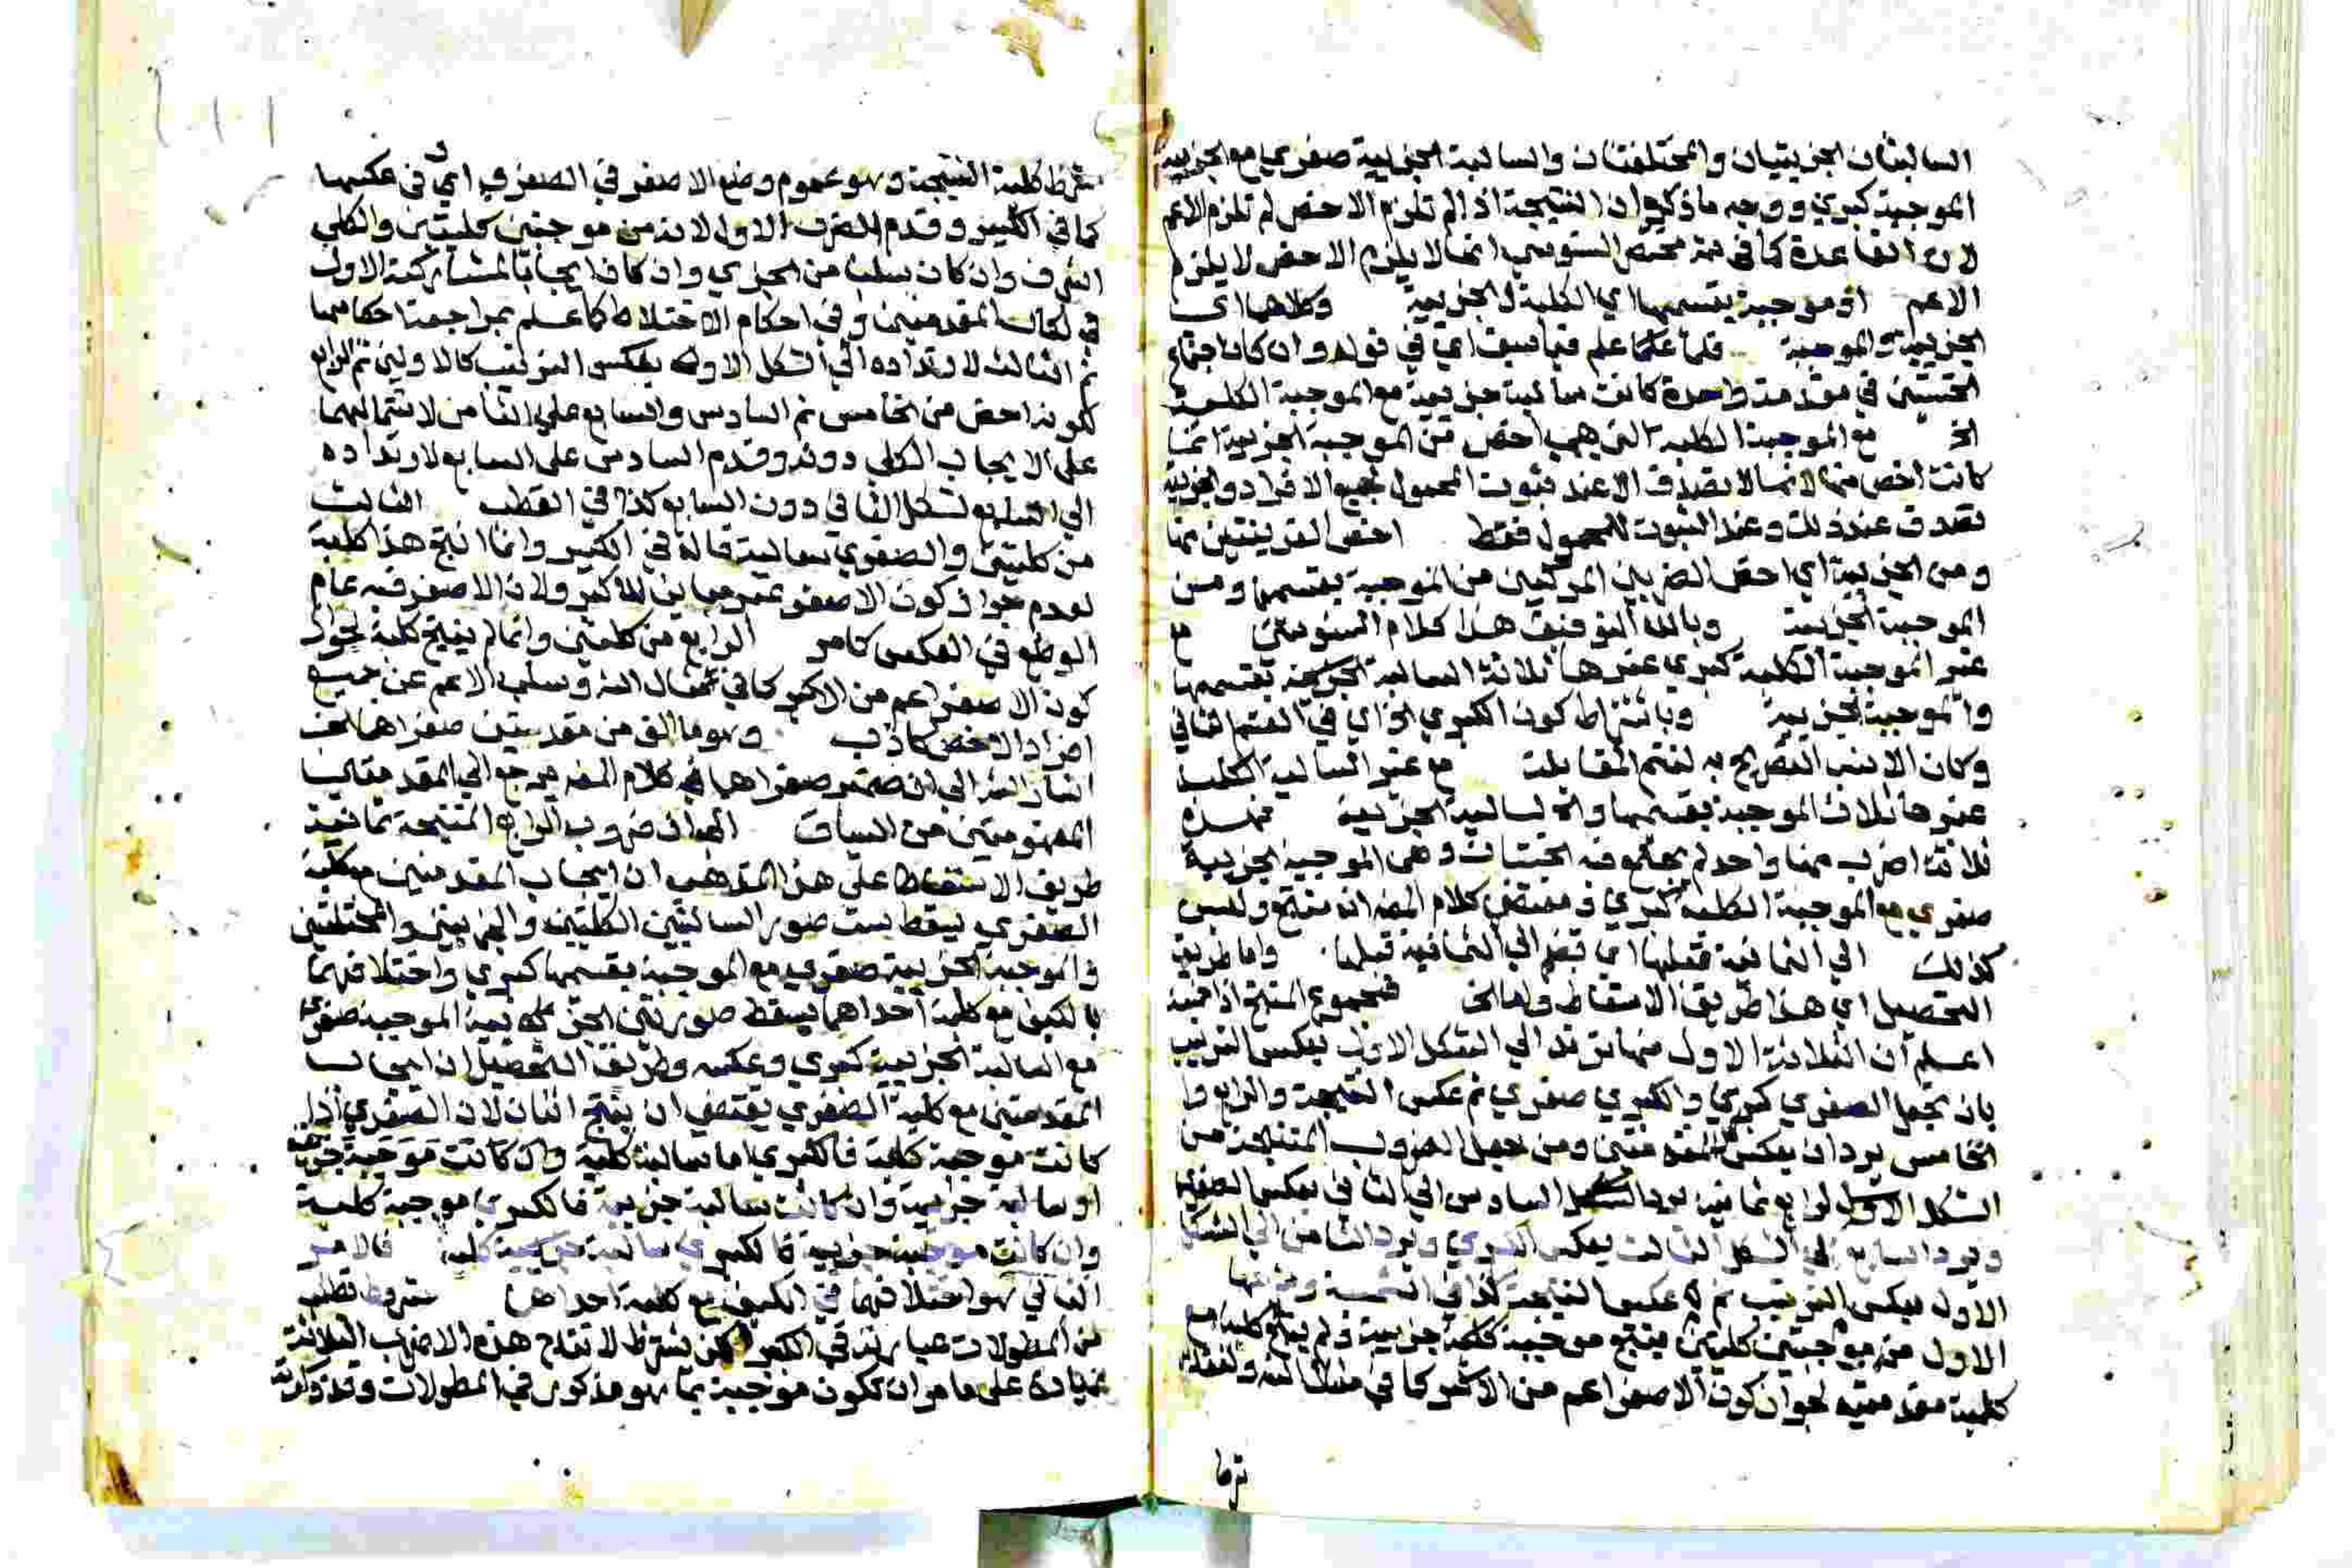 السالبتان الجزئيتان والمختلفتان والسالبة الجزئية صغرى مع الجزئية
الموجبة كبري ووجه ما ذكره ان النتيجة اذا لم تلزم الاخص لم تلزم الاعم
لان القاعدة كما في مختصر السنوسي انما لا يلزم الاخص لا يلزم
الاعم او موجبة بقسميها اي الكلية والجزئية وكلاهما اي
الجزئية والموجبة علم مما سبق اي في قوله وان كان اجتماع
الخستين في مقدمة واحدة كانت سالبة جزئية مع الموجبة الكلية
الخ مع الموجبة الكلية التي هي اخص من الموجبة الجزئية انما
كانت اخص منها لانها لا تصدق الا عند ثبوت المحمول لجميع الافراد والجزئية
تصدق عند ذلك وعند الثبوت للمحمول فقط اخص القرينتين
ومن الجزئية اي اخص الضربين المركبين من الموجبة بقسميها ومن
الموجبة الجزئية وبالله التوفيق هذا كلام السنوسي مع
عقم الموجبة الكلية كبري عقمها ثلاثة السالبة الجزئية بقسميها
والموجبة الجزئية وباشتراط كون الكبري الخ اي في القسم الثاني
وكان الانسب التصريح به لتتم المقابلة مع عقم السالبة الكلية
عقمها ثلاث الموجبة بقسميها والسالبة الجزئية فهذه
ثلاثة اضرب منها واحد لم يجتمع فيه الخستان وهي الموجبة الجزئية
صغري مع الموجبة الكلية كبري فمقتضي كلام المصنف انه منتج وليس
كذلك الي الثمانية قبلها اي تضم الي الثمانية قبلها واما طريق
التحصيل اي هذا طريق الاسقاط واما الخ فمجموع المنتج اذا خمسة
اعلم ان الثلاثة الاول منها ترتد الي الشكل الاول بعكس الترتيب
بان تجعل الصغري كبري والكبري صغري ثم عكس النتيجة والرابع وا
لخامس يردان بعكس المقدمتين ومن جعل الضروب المنتجة من
الشكل الرابع ثمانية يرد السادس الي الثاني بعكس الصغري
ويرد السابع الي الشكل الثالث بعكس الكبري ويرد الثامن الي الشكل
الاول بعكس الترتيب ثم عكس النتيجة كذا في الشمسية وشرحها
الاول من موجبتين كليتين ينتج موجبة جزئية ولم ينتج كلية مع
كلية مقدمتيه لجواز كون الاصغر اعم من الاكبر كما في مثال المص ولفقد
شرط كلية النتيجة وهو عموم وضع الاصغر في الصغري اي في عكسها
كما في الكبير وقدم الضرب الاول لانه من موجبتين كليتين والكلي
اشرف وان كان سلبا من الجزئي وان كان ايجابا لمشاركته الاول
في ايجاب المقدمتين وفي احكام الاختلاط كما علم بمراجعة احكامها
ثم الثالث لارتداده الي الشكل الاول بعكس الترتيب كالاولين ثم الرابع
لكونه اخص من الخامس ثم السادس والسابع علي الثامن لاشتمالهما
علي الايجاب الكلي دونه وقدم السادس علي السابع لارتداده
الي الشكل الثاني دون السابع كذا في القطب الثالث
من كليتين والصغري سالبة قال في الكبير وانما انتج هذا كلية
لعدم جواز كون الاصغر غير مباين للاكبر ولان الاصغر فيه عام
الوضع في العكس كما مر الرابع من كليتين وانما لم ينتج كلية لجواز
كون الاصغر اعم من الاكبر كما في مثال المص وسلب الاعم عن جميع
افراد الاخص كاذب وهو ما الف من مقدمتين صغراهما الخ
اشار المص الي ان ضمير صغراهما في كلام المصنف يرجع الي المقدمتين
المفهومتين من السياق ان ضروب الرابع المنتجة ثمانية
طريق الاسقاط علي هذا المذهب ان ايجاب المقدمتين مع كلية
الصغري يسقط ست صور السالبتين الكليتين والجزئيتين والمختلفتين
والموجبة الجزئية صغري مع الموجبة بقسميها كبري واختلافهما
بالكيف مع كلية احداهما يسقط صورتين الجزئية الموجبة صغري
مع السالبة الجزئية كبري وعكسه وطريق التحصيل ان ايجاب
المقدمتين مع كلية الصغري يقتضي ان ينتج اثنان لان الصغري اذا
كانت موجبة كلية فالكبري اما سالبة كلية وان كانت موجبة جزئية
او سالبة جزئية وان كانت سالبة جزئية فالكبري موجبة كلية
وان كانت موجبة جزئية فالكبري سالبة كلية فالامر
الثاني هو اختلافهما في الكيف مع كلية احداهما شروط تطلب
من المطولات عبارته في الكبير لكن يشترط لانتاج هذه الاضرب الثلاثة
زيادة علي ما مر ان تكون موجبة بما هو مذكور في المطولات وقد ذكرته
شرط